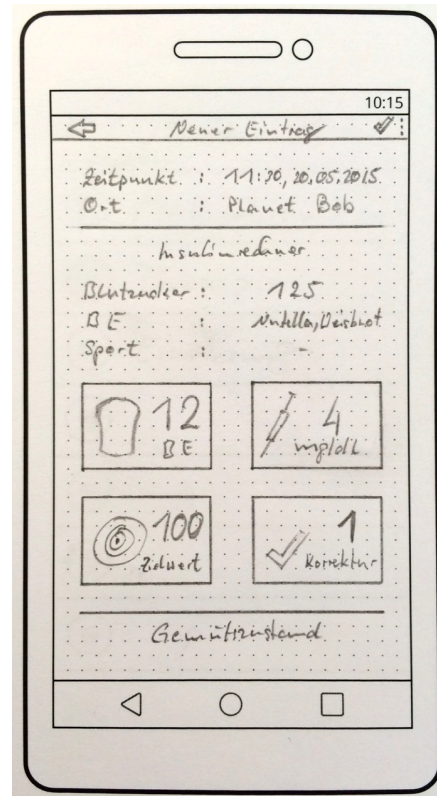 10:15
Neuer Eintrag
Zeitpunkt : 11:20, 20.05.2015
Ort : Planet Bob
Insulinrechner
Blutzucker : 125
BE : Nutella, Weisbrot
Sport : -
12
BE
4
mg/dl
100
Zielwert
1
Korrektur
Gemütszustand